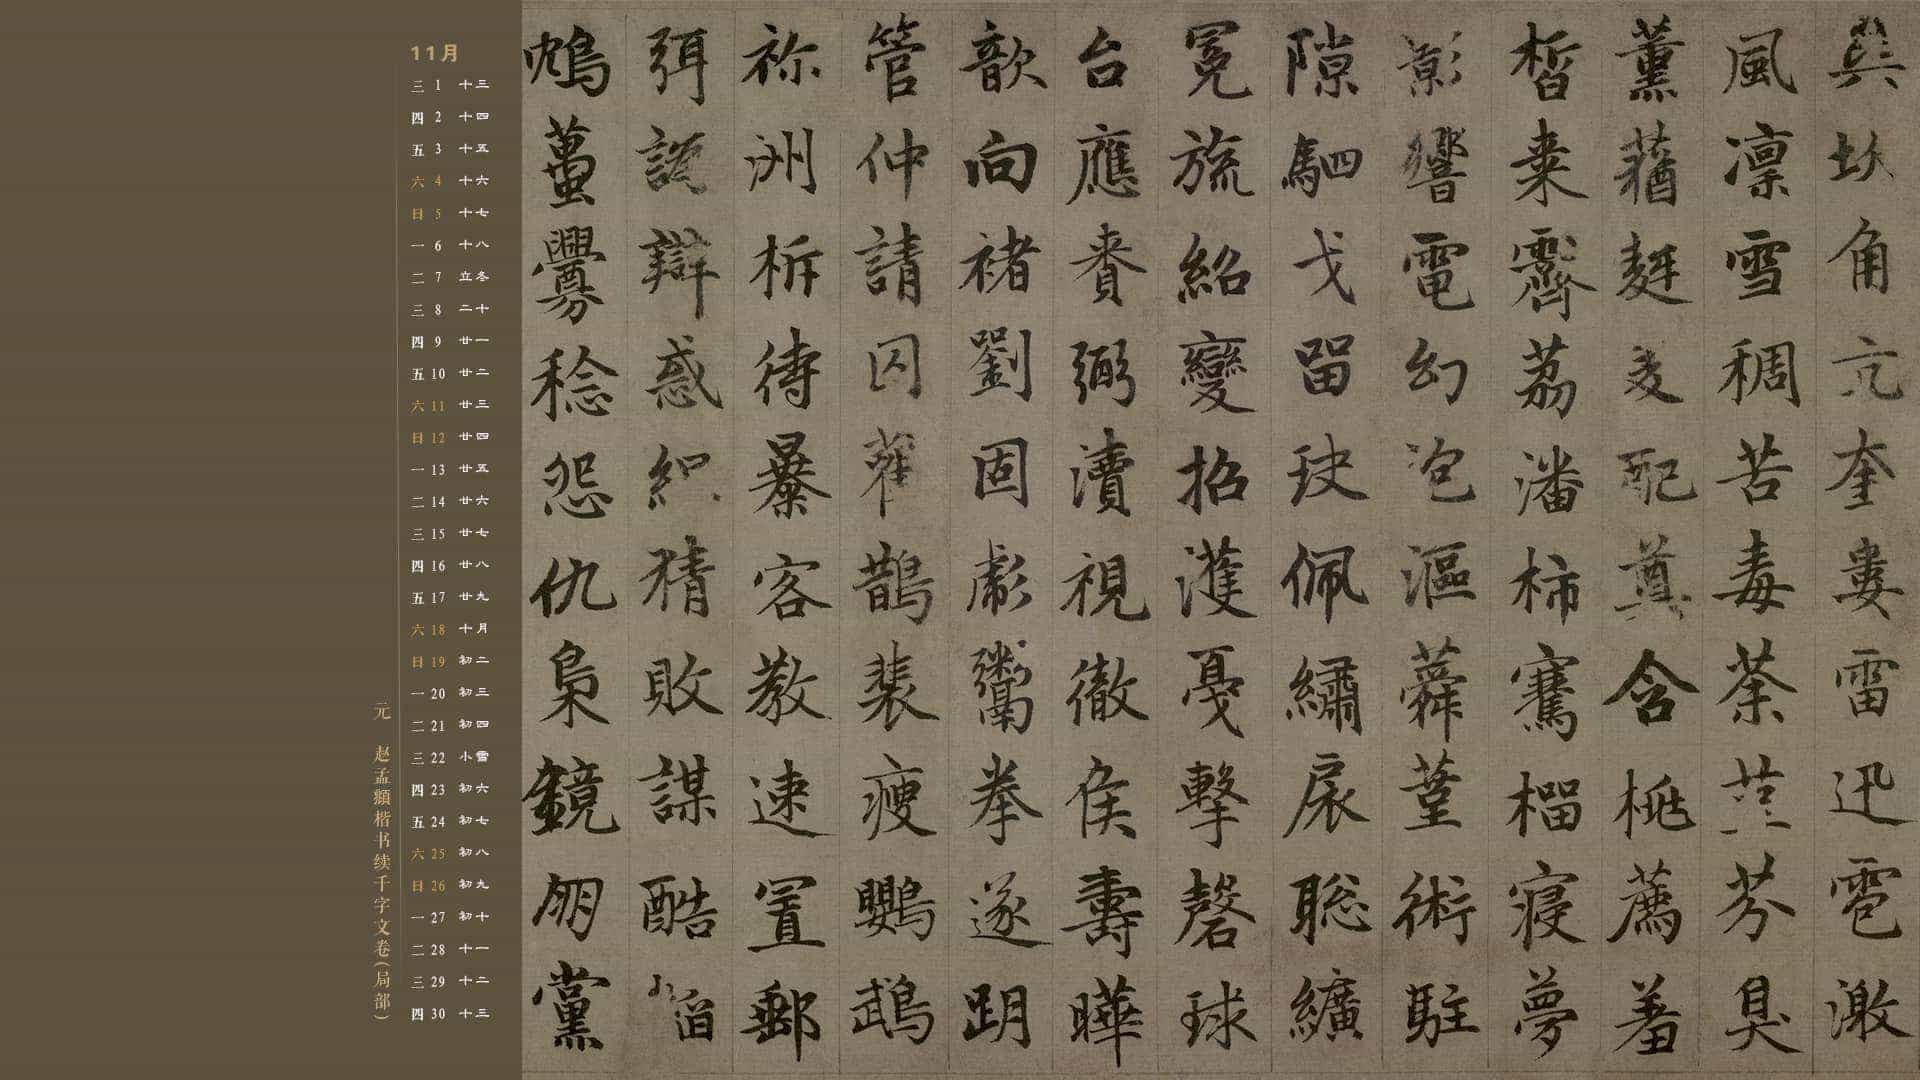 11月
三 1 十三
四 2 十四
五 3 十五
六 4 十六
日 5 十七
一 6 十八
二 7 立冬
三 8 二十
四 9 廿一
五 10 廿二
六 11 廿三
日 12 廿四
一 13 廿五
二 14 廿六
三 15 廿七
四 16 廿八
五 17 廿九
六 18 十月
日 19 初二
一 20 初三
二 21 初四
三 22 小雪
四 23 初六
五 24 初七
六 25 初八
日 26 初九
一 27 初十
二 28 十一
三 29 十二
四 30 十三
元 赵孟頫楷书续千字文卷(局部)
巽坎角亢奎婁雷迅雹激
風凛雪稠苦毒荼芬臭
薰蕕麸麦配尊含桃薦羞
皙来霽荔潘柿騫榴寢夢
影響電幻泡漚蕣堇術駐
隙駟戈留玦佩繡扆聡纊
冕旒紹變招護戛擊磬球
台應賚弼瀆視徹侯壽曄
歆向褚劉固彪鬻拳遂明
管仲請囚萑鵲裴瘦鸚鵡
祢洲析待暴客教速置郵
弭詭辯惑織猜敗謀酷
鴆蠆釁稔怨仇梟鏡朋黨